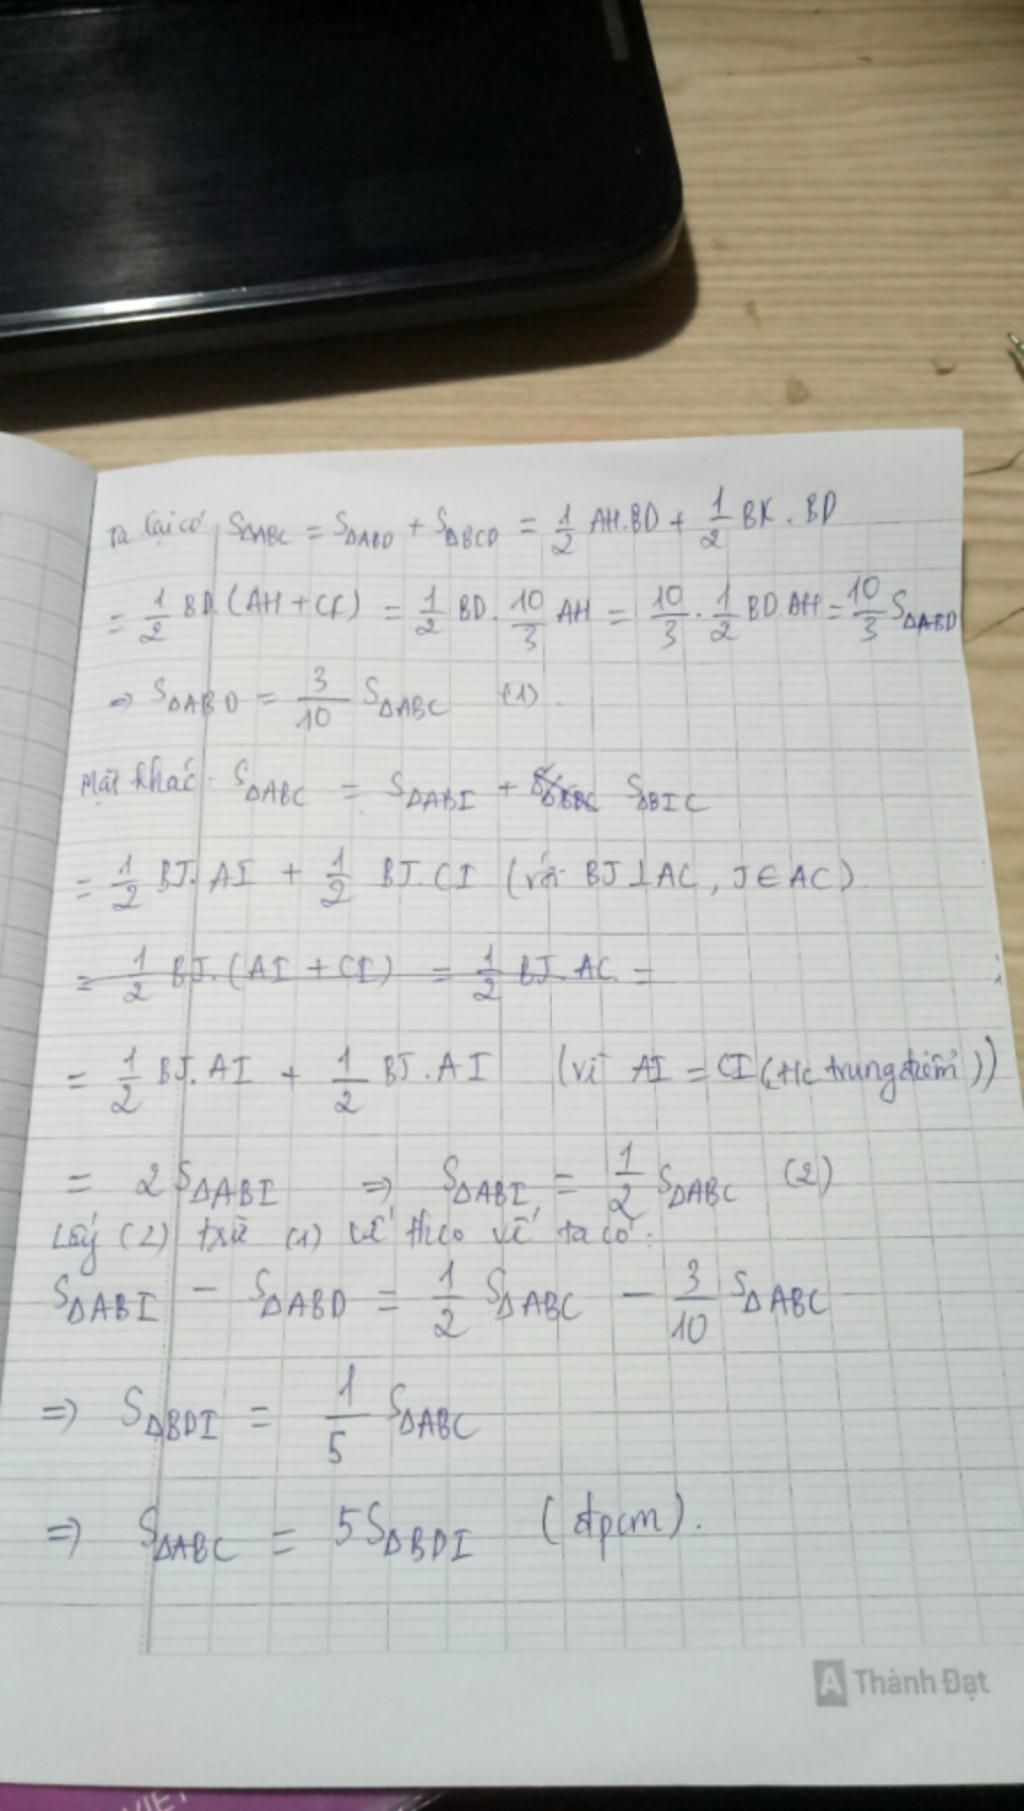 Ta lại có S△ABC = S△ABD + S△BCD = 1/2 AH.BD + 1/2 BK.BD
= 1/2 BD.(AH+CI) = 1/2 BD.10/3 AH = 10/3.1/2 BD.AH = 10/3 S△ABD
⇒ S△ABD = 3/10 S△ABC (1).
Mặt khác: S△ABC = S△ABI + S△BIC
= 1/2 BJ.AI + 1/2 BJ.CI (với BJ⊥AC, J∈AC).
= 1/2 BJ.(AI+CI) = 1/2 BJ.AC =
= 1/2 BJ.AI + 1/2 BJ.AI (vì AI = CI (t/c trung điểm))
= 2S△ABI ⇒ S△ABI = 1/2 S△ABC (2)
Lấy (2) trừ (1) vế theo vế ta có:
S△ABI - S△ABD = 1/2 S△ABC - 3/10 S△ABC
⇒ S△BDI = 1/5 S△ABC
⇒ S△ABC = 5S△BDI (đpcm).
A Thành Đạt
VIỆT